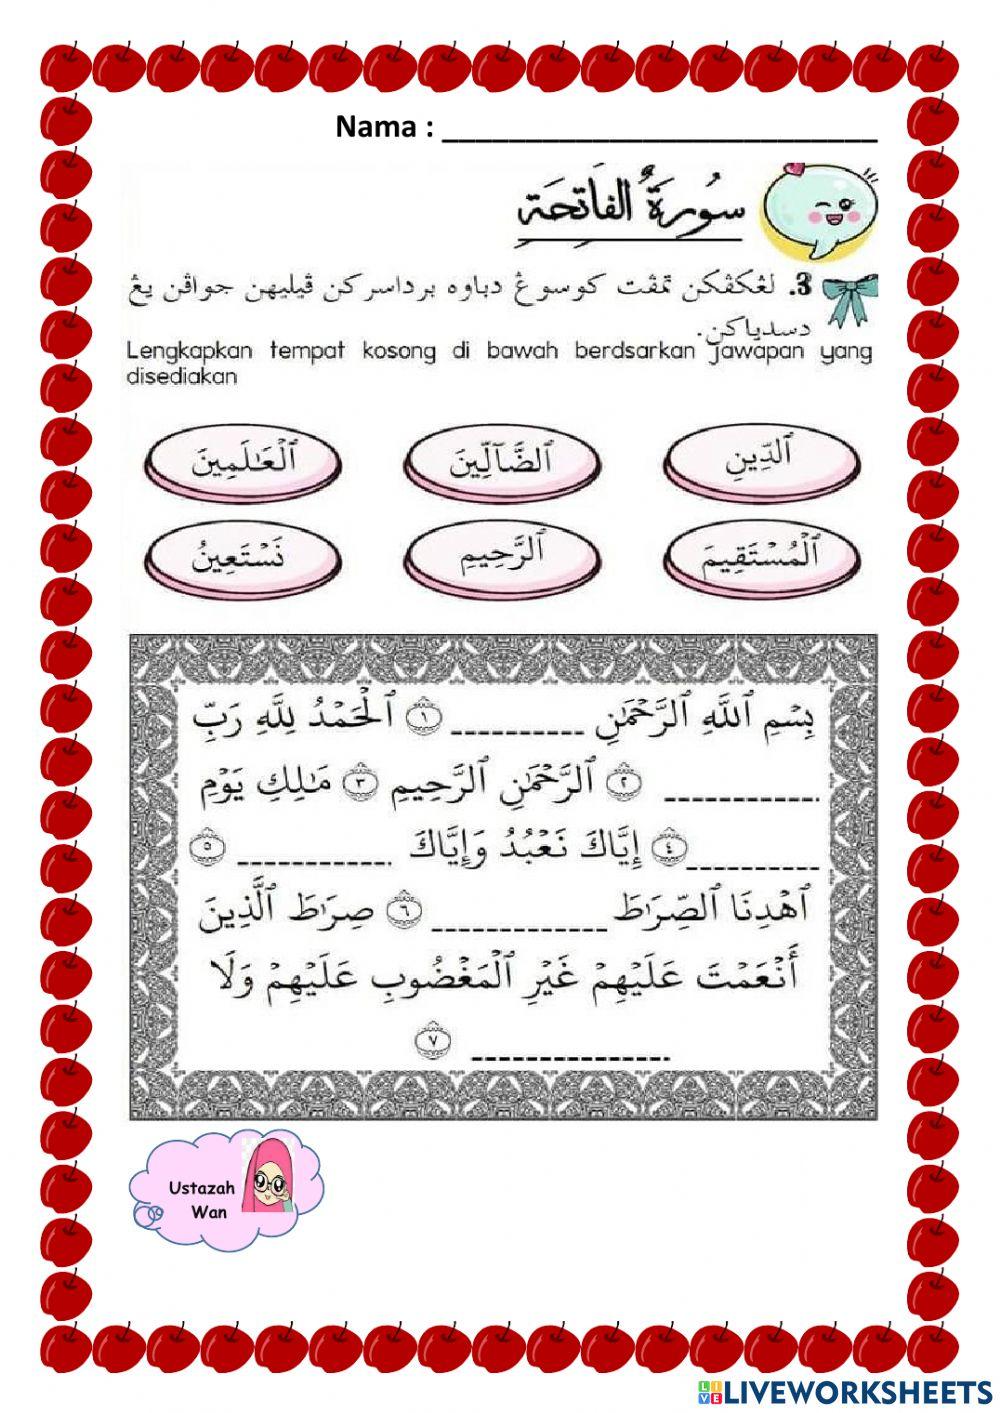 Nama : ____________________________
سُورَةُ الْفَاتِحَةِ
3. لڠكڤكن تمڤت كوسوڠ دباوه برداسركن ڤيليهن جواڤن يڠ
دسدياكن.
Lengkapkan tempat kosong di bawah berdsarkan jawapan yang
disediakan
ٱلدِّينِ ٱلضَّآلِّينَ ٱلْعَـٰلَمِينَ
ٱلْمُسْتَقِيمَ ٱلرَّحِيمِ نَسْتَعِينُ
بِسْمِ ٱللَّهِ ٱلرَّحْمَـٰنِ __________ ١ ٱلْحَمْدُ لِلَّهِ رَبِّ
____________ ٢ ٱلرَّحْمَـٰنِ ٱلرَّحِيمِ ٣ مَـٰلِكِ يَوْمِ
__________ ٤ إِيَّاكَ نَعْبُدُ وَإِيَّاكَ ____________ ٥
ٱهْدِنَا ٱلصِّرَٰطَ _____________ ٦ صِرَٰطَ ٱلَّذِينَ
أَنْعَمْتَ عَلَيْهِمْ غَيْرِ ٱلْمَغْضُوبِ عَلَيْهِمْ وَلَا
_______________ ٧
Ustazah
Wan
LIVE LIVEWORKSHEETS